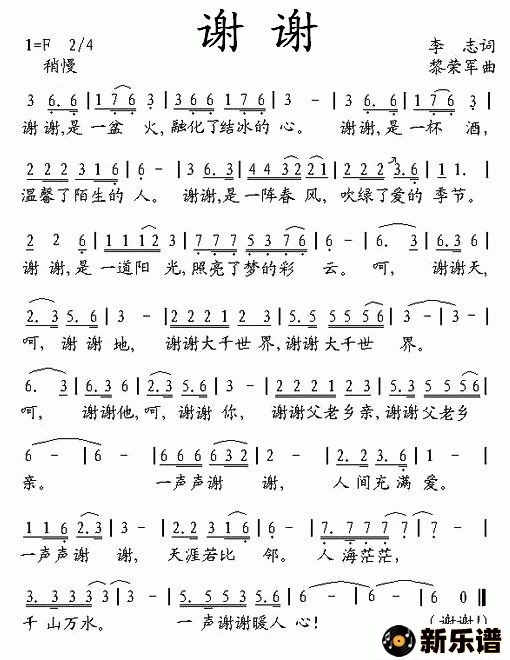 谢 谢
1=F 2/4 李 志词
稍慢 黎荣军曲
3 6. 6 | 1 7 6 3 | 3 6 6 6 1 7 6 | 6 - | 3 6. 6 | 1 7 6 3 |
谢 谢,是 一盆 火,融化了结冰的 心。 谢谢,是 一杯 酒,
2 2 2 2 3 1 6 | 6 - | 3 6. 3 | 4 4 3 2 2 1 | 2 2 2 3 6 | 1 1. |
温馨了陌生的 人。 谢谢,是 一阵春 风, 吹绿了爱的 季节。
2 2 6 | 1 1 1 2 3 | 7 7 7 5 3 7 6 | 6 - | 6. 3 | 6. 3 6 |
谢 谢,是 一道阳 光,照亮了梦的彩 云。 呵, 谢谢天,
2. 3 5. 6 | 3 - | 2 2 2 1 2 3 | 5 5 5 5 6 | 3 - | 3 - |
呵, 谢 谢 地, 谢谢大千世 界,谢谢大千世 界。
6. 3 | 6. 3 6 | 2. 3 5. 6 | 3 - | 2 2 2 1 2 3 | 5. 3 5 5 5 6 |
呵, 谢谢他,呵, 谢谢 你, 谢谢父老乡亲,谢谢父老乡
6 - | 6 - | 6 6 6 6 3 2 | 2 - | 2. 2 3. 6 | 1 - |
亲。 一声声谢 谢, 人 间充 满 爱。
1 1 6 2. 3 | 3 - | 2 2 3 1 6 | 6 - | 7. 7 7 7 7 | 7 7 |
一声声谢 谢, 天涯若比 邻。 人 海茫茫,
3. 3 3 3 3 | 3 - | 5 5 5 5 3 5 6 | 6 - | 6 - | 6 0 ‖
千 山万水。 一声谢谢暖人 心! (谢谢!)
新乐谱